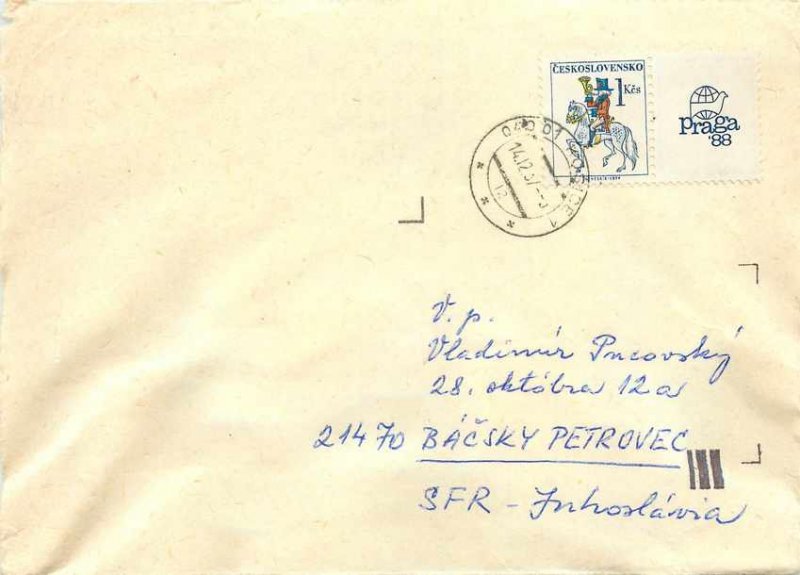 ČESKOSLOVENSKO
1 Kčs
Praga
'88
040 01 KOŠICE 1
14.12.87
12
V. p.
Vladimír Pucovský
28. októbra 12a
21470 BÁČSKY PETROVEC
SFR - Juhoslávia